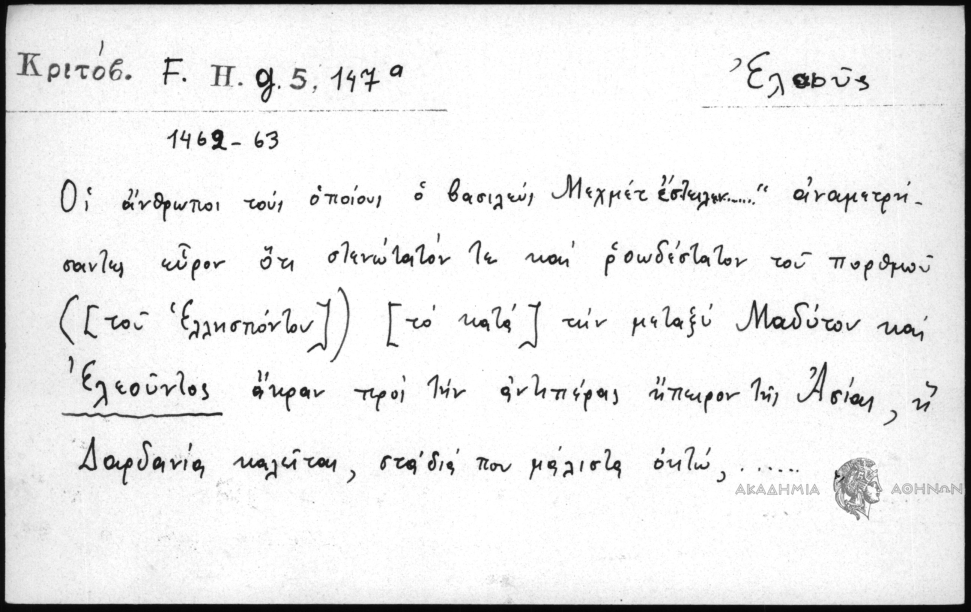 Κριτόβ. F. H. g. 5, 147ª
Ἐλαοῦς
1462-63
Οἱ ἄνθρωποι τούς ὁποίους ὁ βασιλεύς Μεχμέτ ἔστειλεν......." ἀναμετρή-
σαντες εὗρον ὅτι στενώτατόν τε καί ῥοωδέστατον τοῦ πορθμοῦ
([τοῦ Ἑλλησπόντου]) [τό κατά] τήν μεταξύ Μαδύτου καί
Ἐλεοῦντος ἄκραν πρός τήν ἀντιπέρας ἤπειρον τῆς Ἀσίας, ἥ
Δαρδανία καλεῖται, στάδιά που μάλιστα ὀκτώ, ......
ΑΚΑΔΗΜΙΑ ΑΘΗΝΩΝ